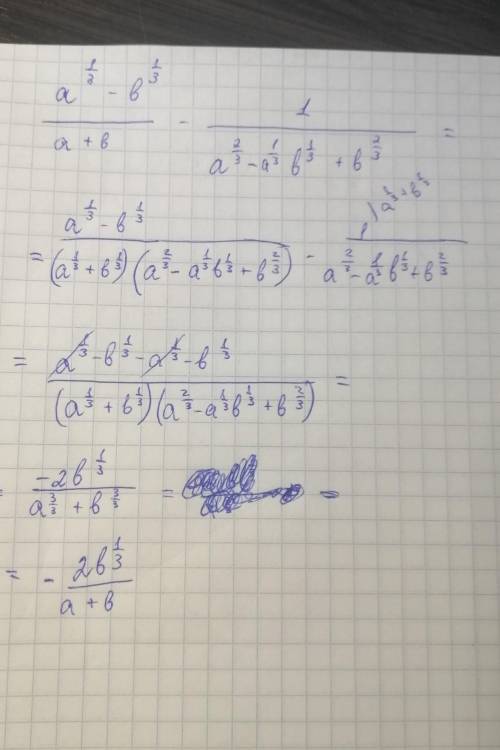 (a^(1/3) - b^(1/3))/(a + b) - 1/(a^(2/3) - a^(1/3) b^(1/3) + b^(2/3)) =
= (a^(1/3) - b^(1/3))/((a^(1/3) + b^(1/3))(a^(2/3) - a^(1/3) b^(1/3) + b^(2/3))) - 1 )a^(1/3) + b^(1/3) /(a^(2/3) - a^(1/3) b^(1/3) + b^(2/3))
= (a^(1/3) - b^(1/3) - a^(1/3) - b^(1/3))/((a^(1/3) + b^(1/3))(a^(2/3) - a^(1/3) b^(1/3) + b^(2/3))) =
= (-2b^(1/3))/(a^(3/3) + b^(3/3)) =
= - (2b^(1/3))/(a + b)